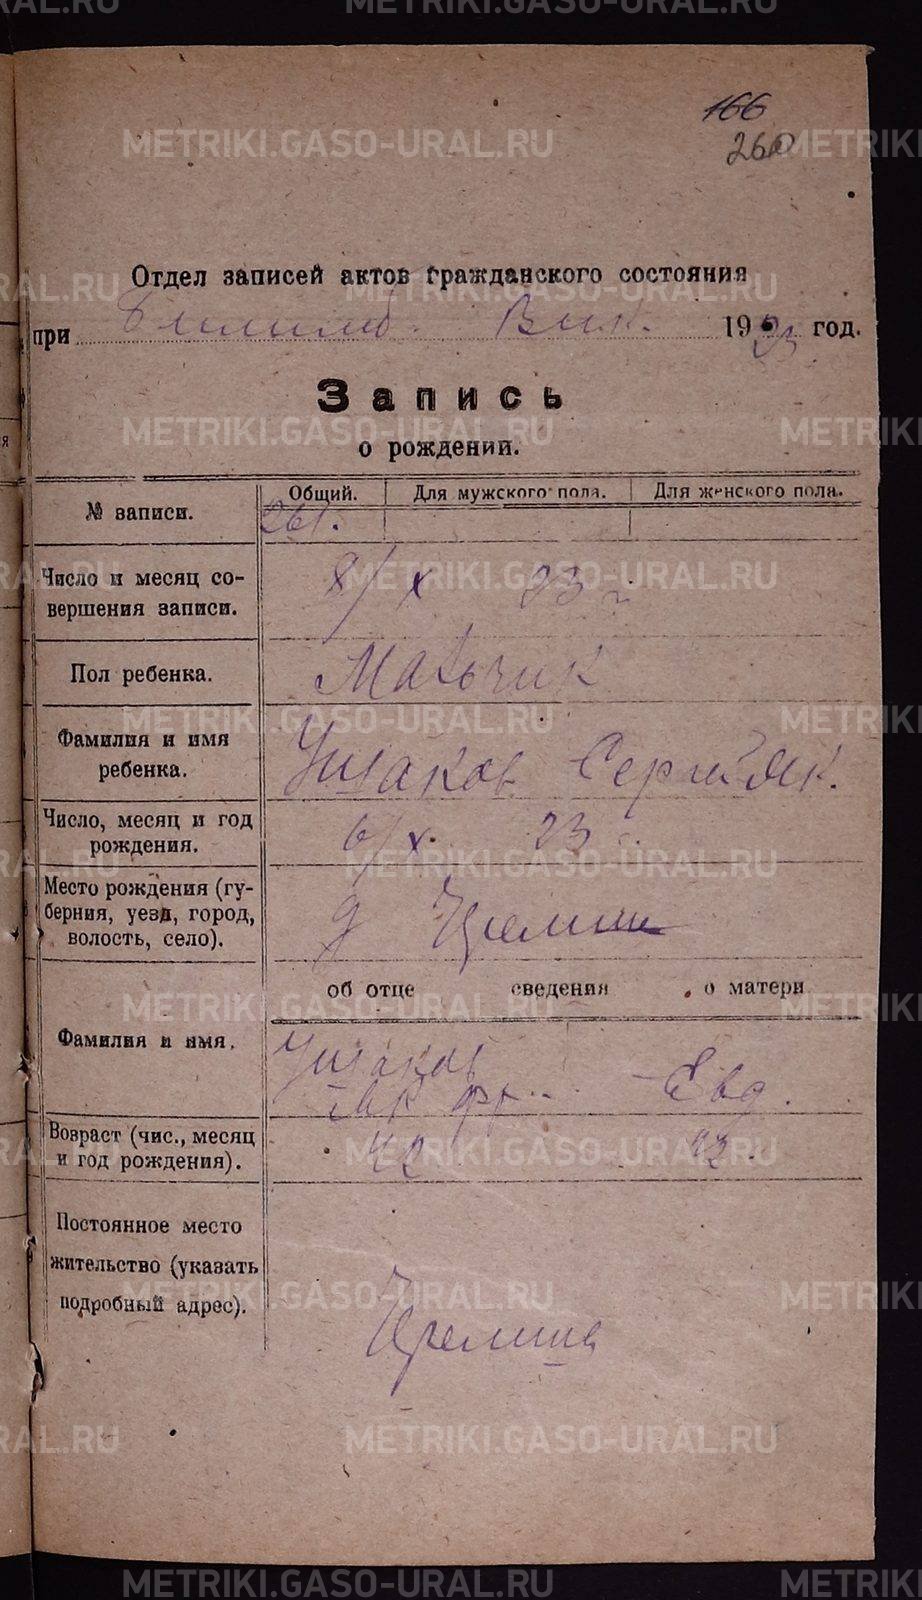 166
260
Отдел записей актов гражданского состояния
при Билимб. Вик. 1923 год.
Запись
о рождении.
№ записи.
Общий. Для мужского пола. Для женского пола.
261.
Число и месяц со-
вершения записи.
8/X 23 г
Пол ребенка.
Мальчик
Фамилия и имя
ребенка.
Ушаков Сергей Як.
Число, месяц и год
рождения.
6/X. 23 г.
Место рождения (гу-
берния, уезд, город,
волость, село).
д
об отце сведения о матери
Фамилия и имя.
Ушаков
Як Фр... Евд.
Возраст (чис., месяц
и год рождения).
42 42.
Постоянное место
жительство (указать
подробный адрес).
METRIKI.GASO-URAL.RU